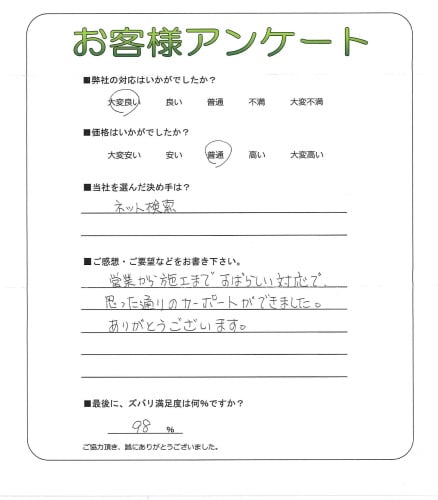 お客様アンケート
■弊社の対応はいかがでしたか?
大変良い 良い 普通 不満 大変不満
■価格はいかがでしたか?
大変安い 安い 普通 高い 大変高い
■当社を選んだ決め手は?
ネット検索
■ご感想・ご要望などをお書き下さい。
営業から施工まですばらしい対応で、
思った通りのカーポートができました。
ありがとうございます。
■最後に、ズバリ満足度は何%ですか?
98 %
ご協力頂き、誠にありがとうございました。